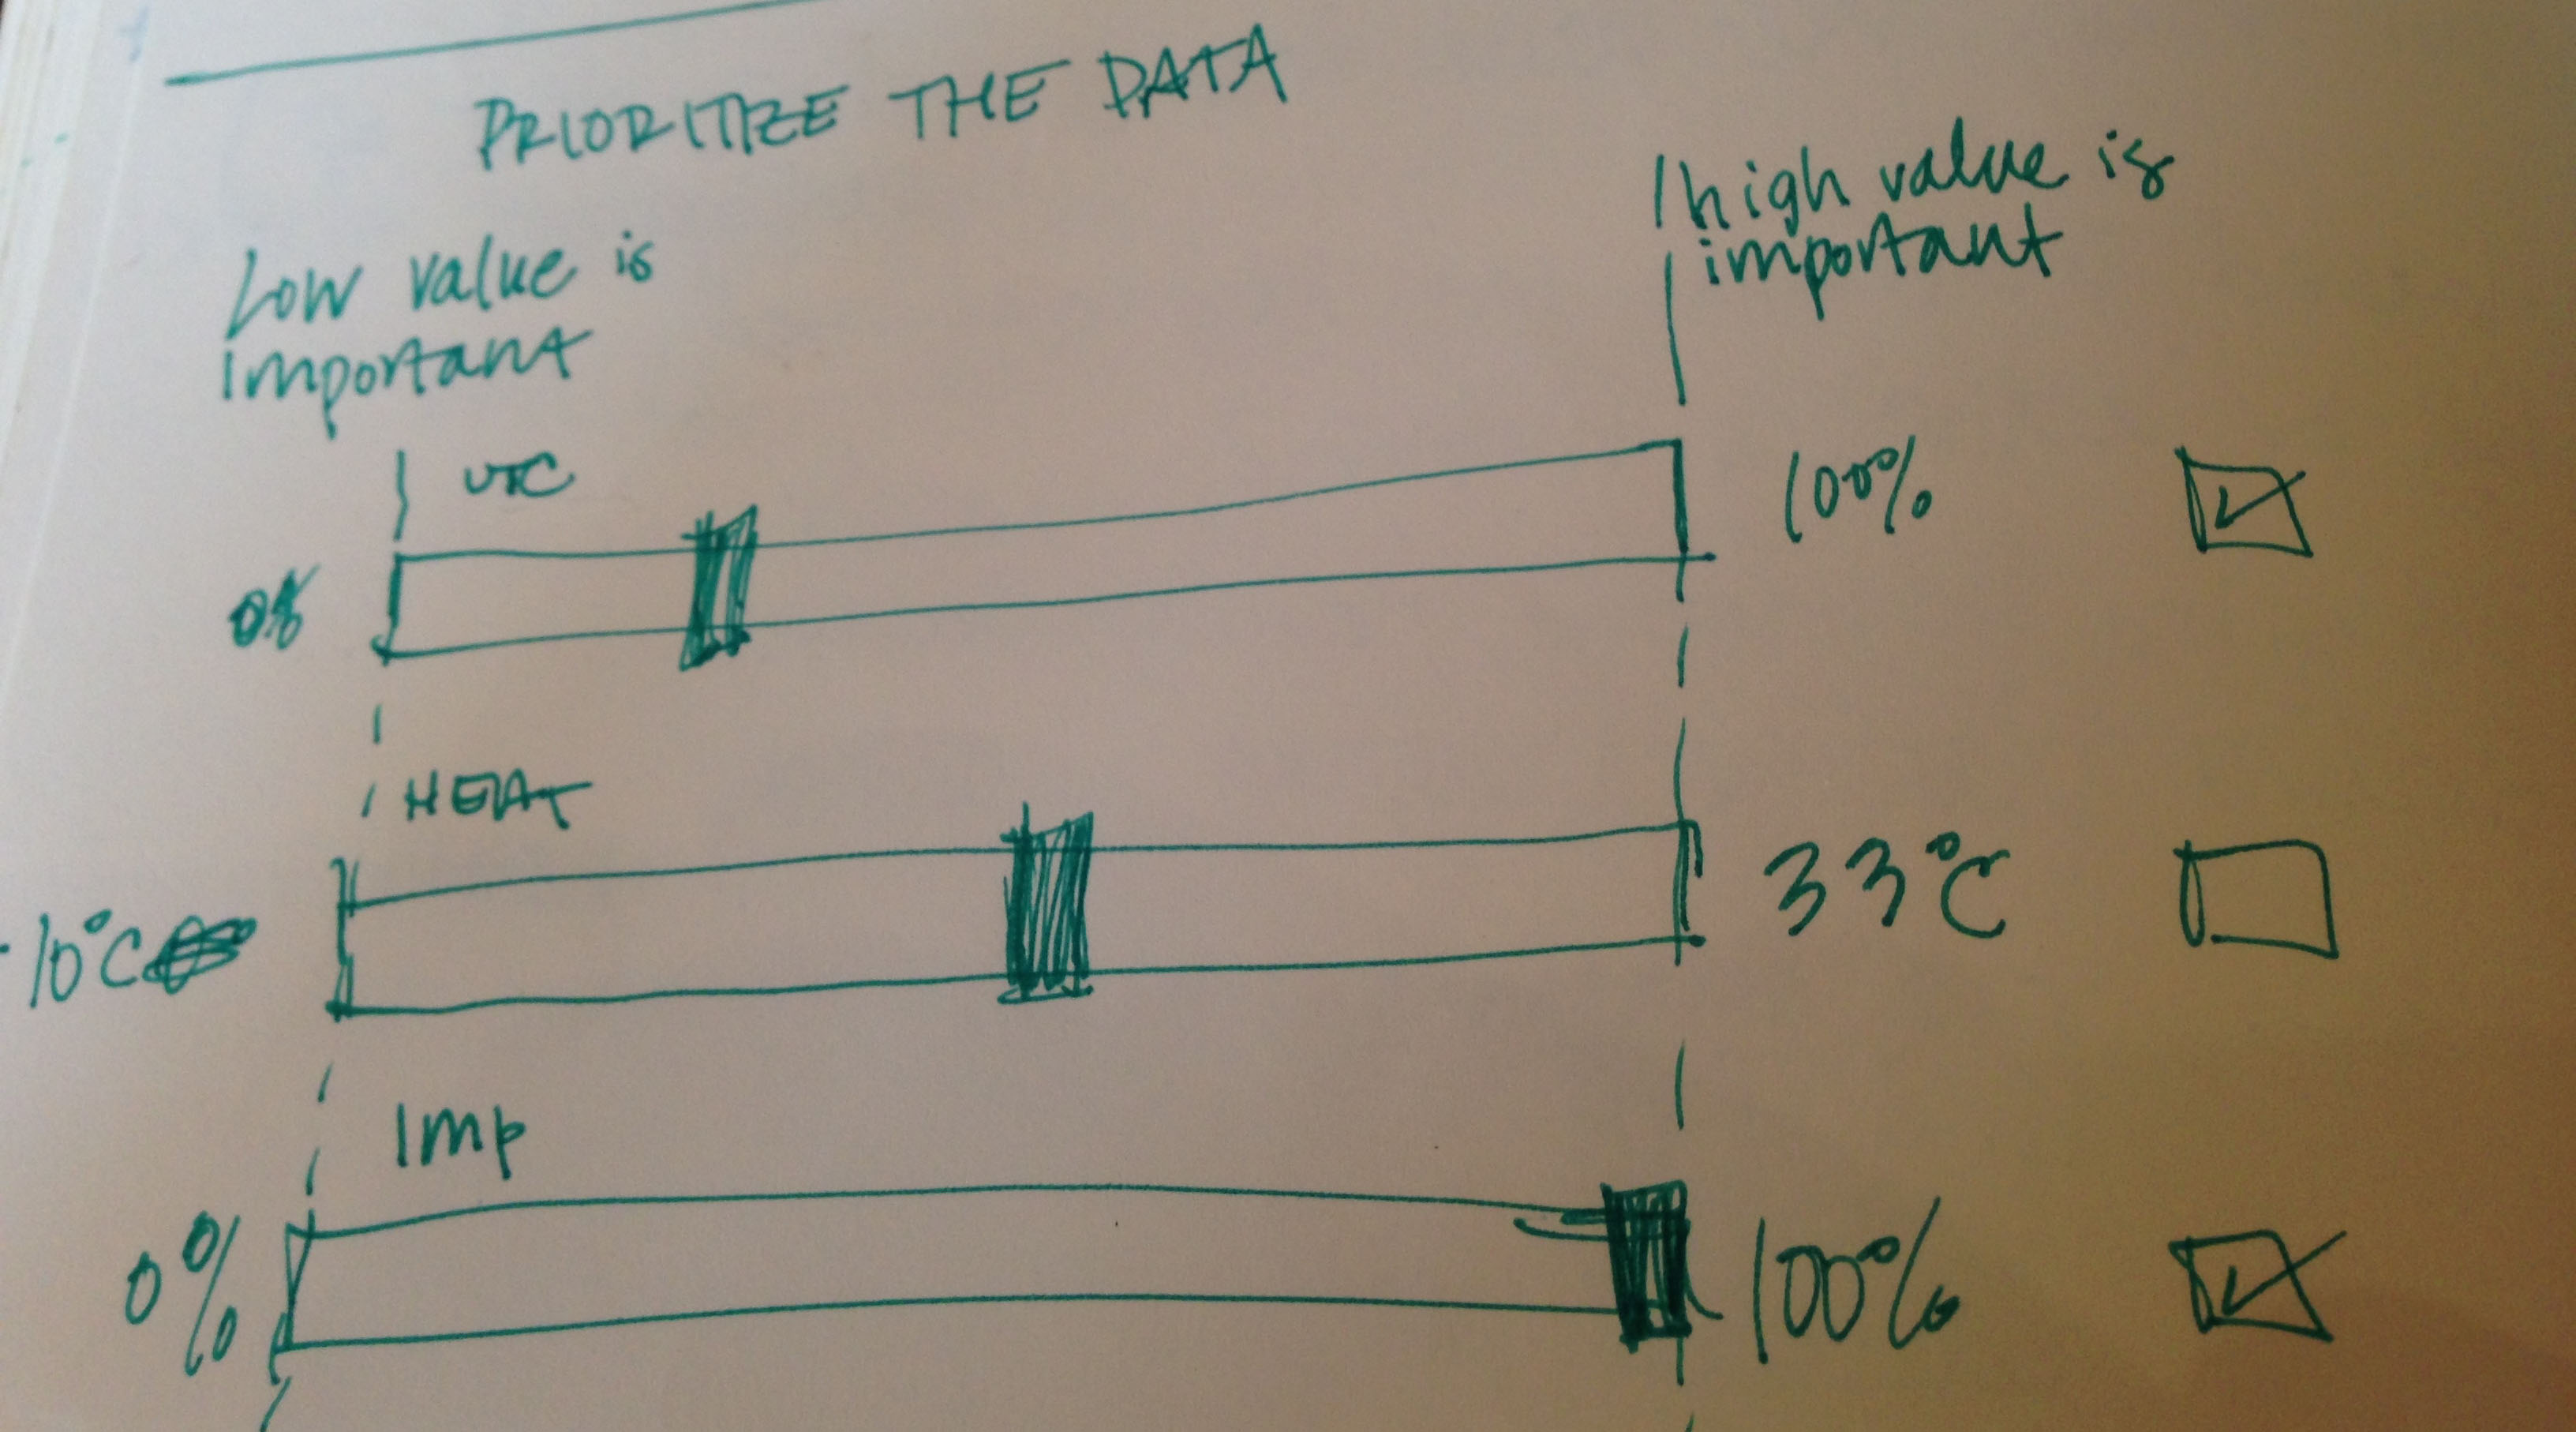 PRIORITIZE THE DATA
Low value is
important
high value is
important
UTC
0%
100%
HEAT
10°C
33°C
Imp
0%
100%